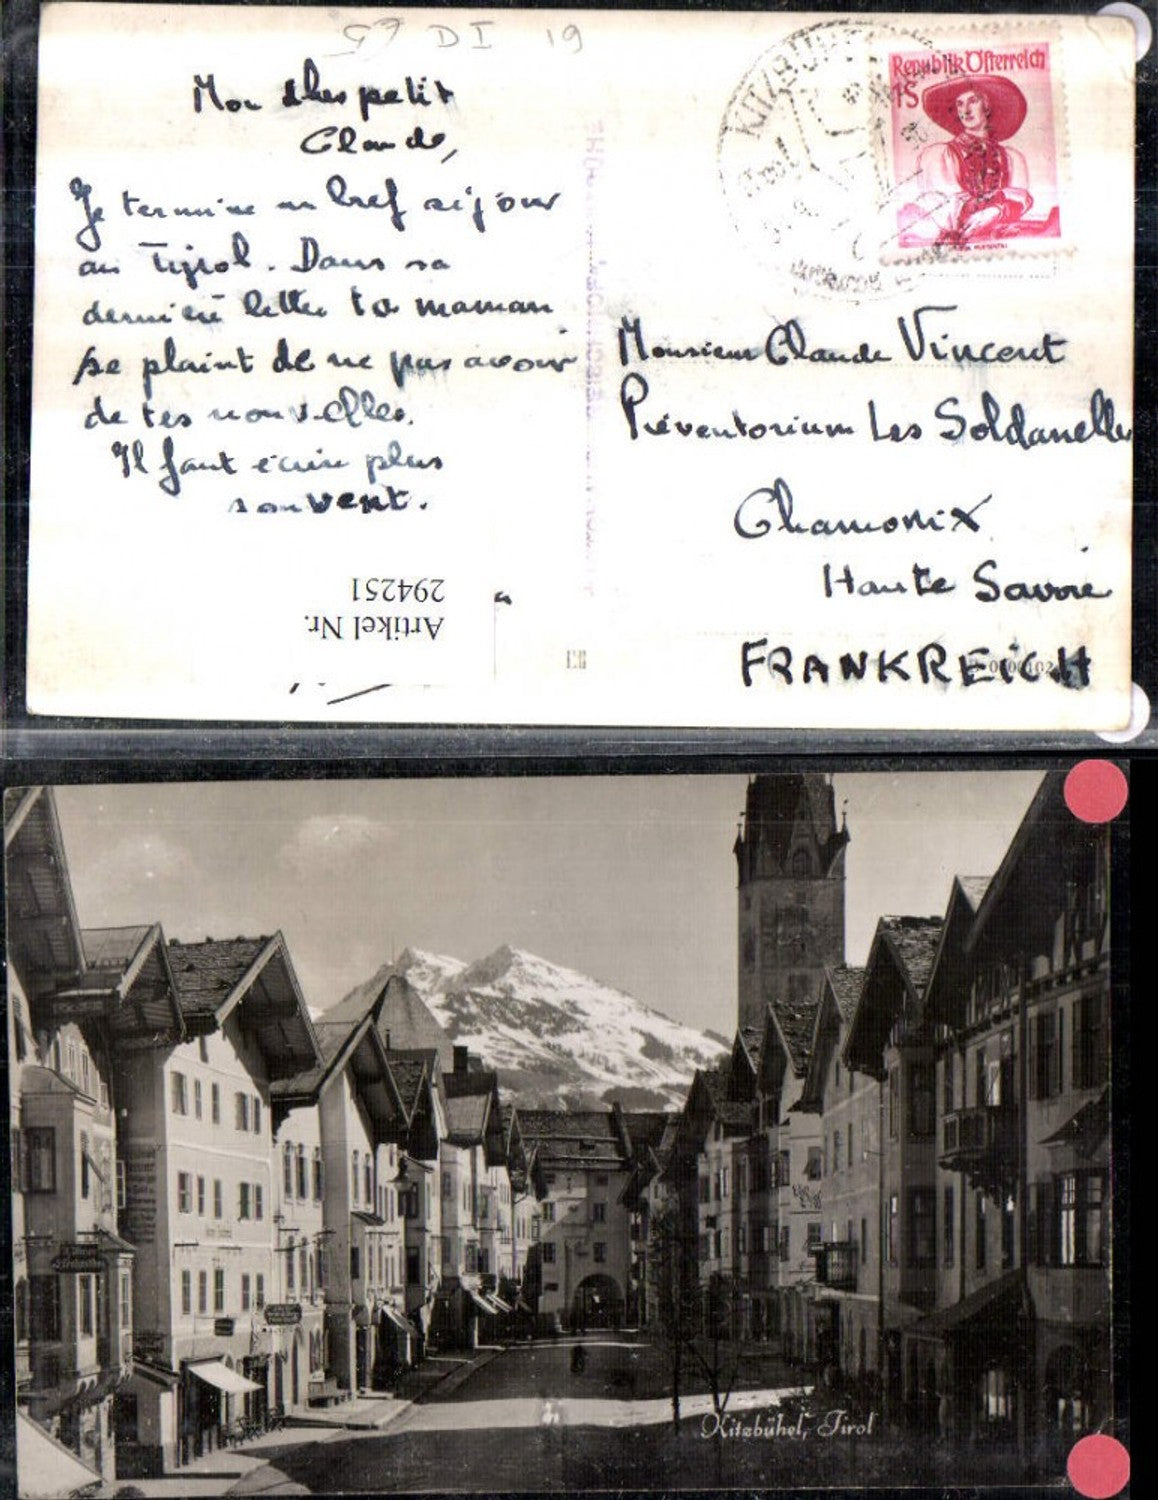 57 DI 19
Mon cher petit
Claude,
Je termine un bref séjour
au Tyrol. Dans sa
dernière lettre ta maman
se plaint de ne pas avoir
de tes nouvelles.
Il faut écrire plus
souvent.
KITZBÜHEL
Republik Österreich
1S
Monsieur Claude Vincent
Préventorium Les Soldanelles
Chamonix
Haute Savoie
FRANKREICH
Artikel Nr.
294251
Kitzbühel, Tirol